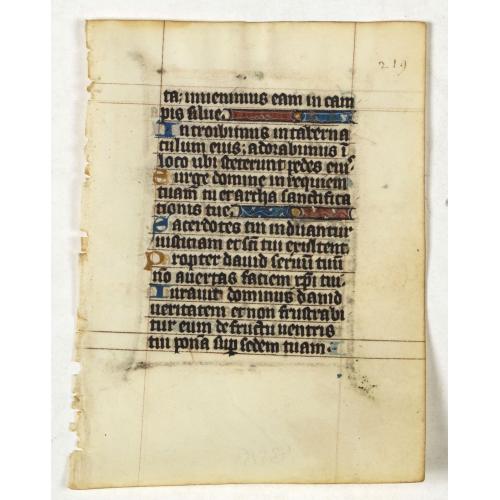 219
ta; inuenimus eam in cam
pis silue
Introibimus in taberna
culum eius; adorabimus i
loco ubi steterunt pedes eiꝰ
Surge domine in requiem
tuam tu et archa sanctifica
tionis tue
Sacerdotes tui induantur
iusticiam et sc̄i tui exultent
Propter dauid seruū tuū
nō auertas faciem xp̄i tui
Iurauit dominus dauid
ueritatem et non frustrabi
tur eum de fructu uentris
tui ponā sup sedem tuam